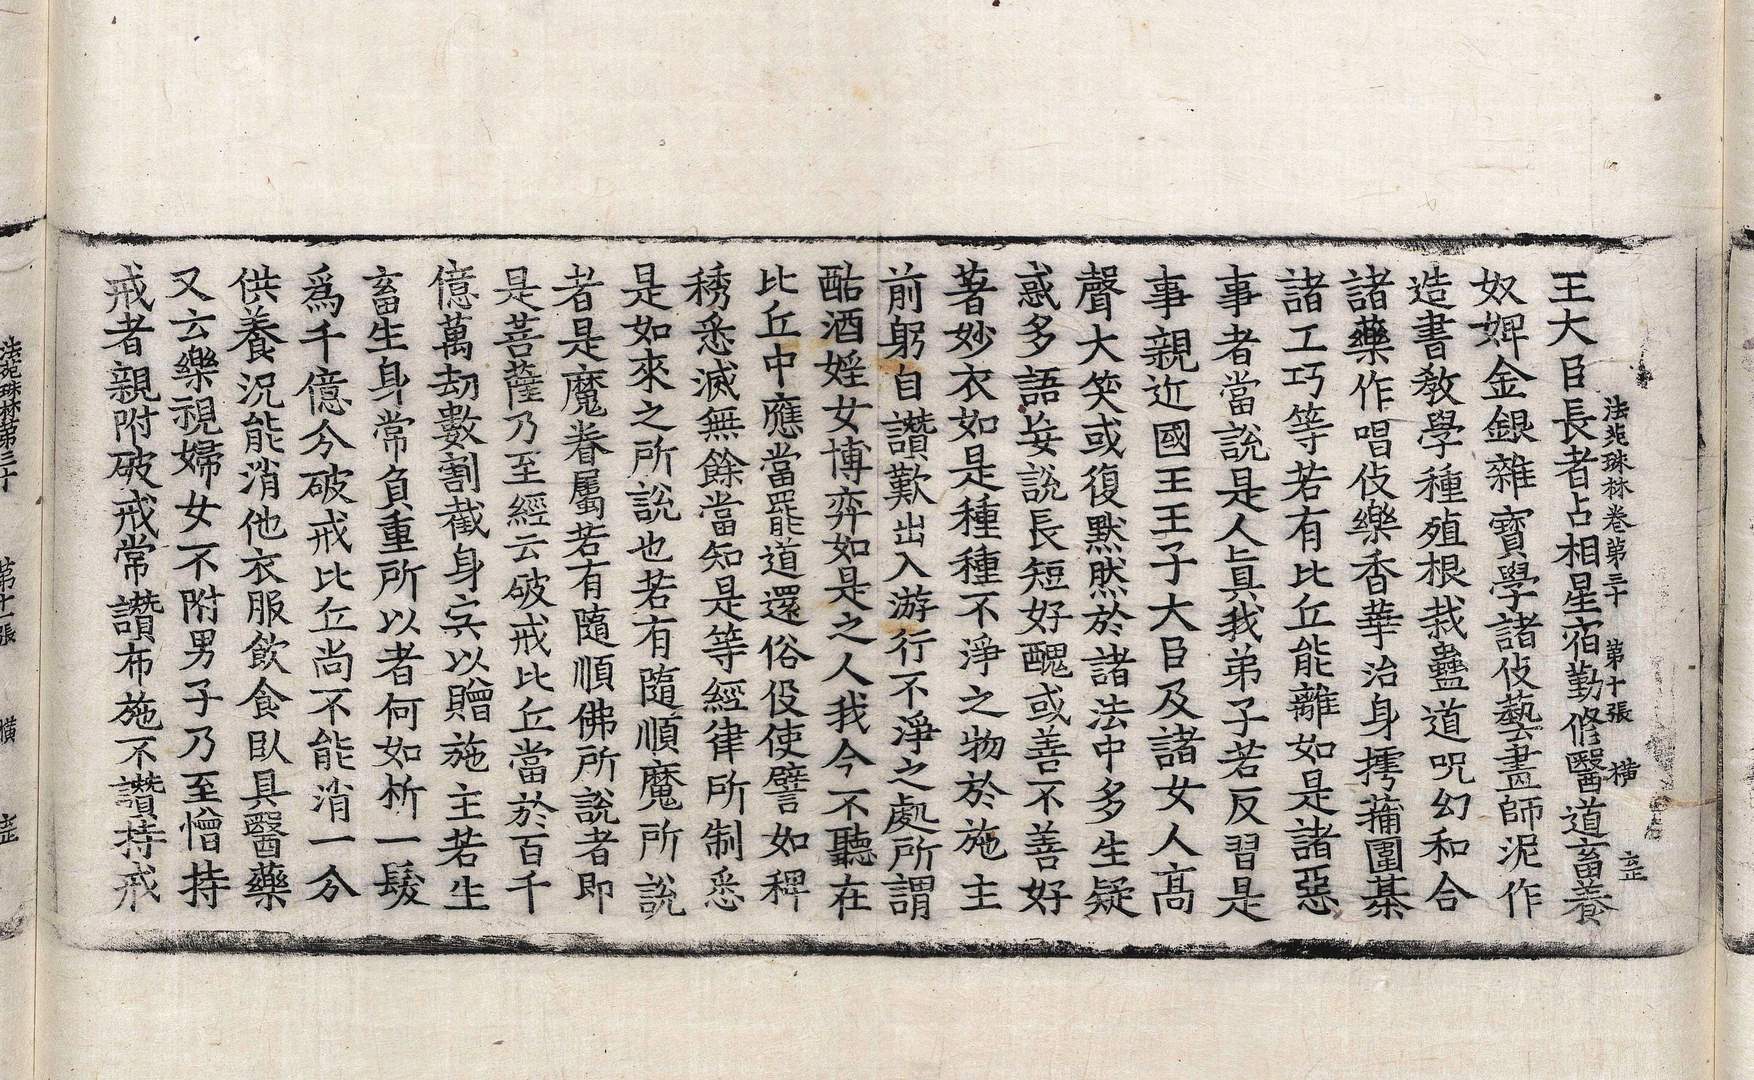 法苑珠林卷第三十 第十張 橫 㱏
王大臣長者占相星宿勤修醫道畜養
奴婢金銀雜寶學諸伎藝畫師泥作
造書教學種殖根栽蠱道呪幻和合
諸藥作唱伎樂香華治身摴蒱圍棊
諸工巧等若有比丘能離如是諸惡
事者當說是人真我弟子若反習是
事親近國王王子大臣及諸女人高
聲大笑或復默然於諸法中多生疑
惑多語妄說長短好醜或善不善好
著妙衣如是種種不淨之物於施主
前躬自讚歎出入游行不淨之處所謂
酤酒婬女博弈如是之人我今不聽在
比丘中應當罷道還俗伇使譬如稗
稊悉滅無餘當知是等經律所制悉
是如來之所說也若有隨順魔所說
者是魔眷屬若有隨順佛所說者即
是菩薩乃至經云破戒比丘當於百千
億萬劫數割截身宍以贈施主若生
畜生身常負重所以者何如析一髮
為千億分破戒比丘尚不能消一分
供養況能消他衣服飲食臥具醫藥
又云樂視婦女不附男子乃至憎持
戒者親附破戒常讚布施不讚持戒
法苑珠林第三十 第十一張 橫 㱏